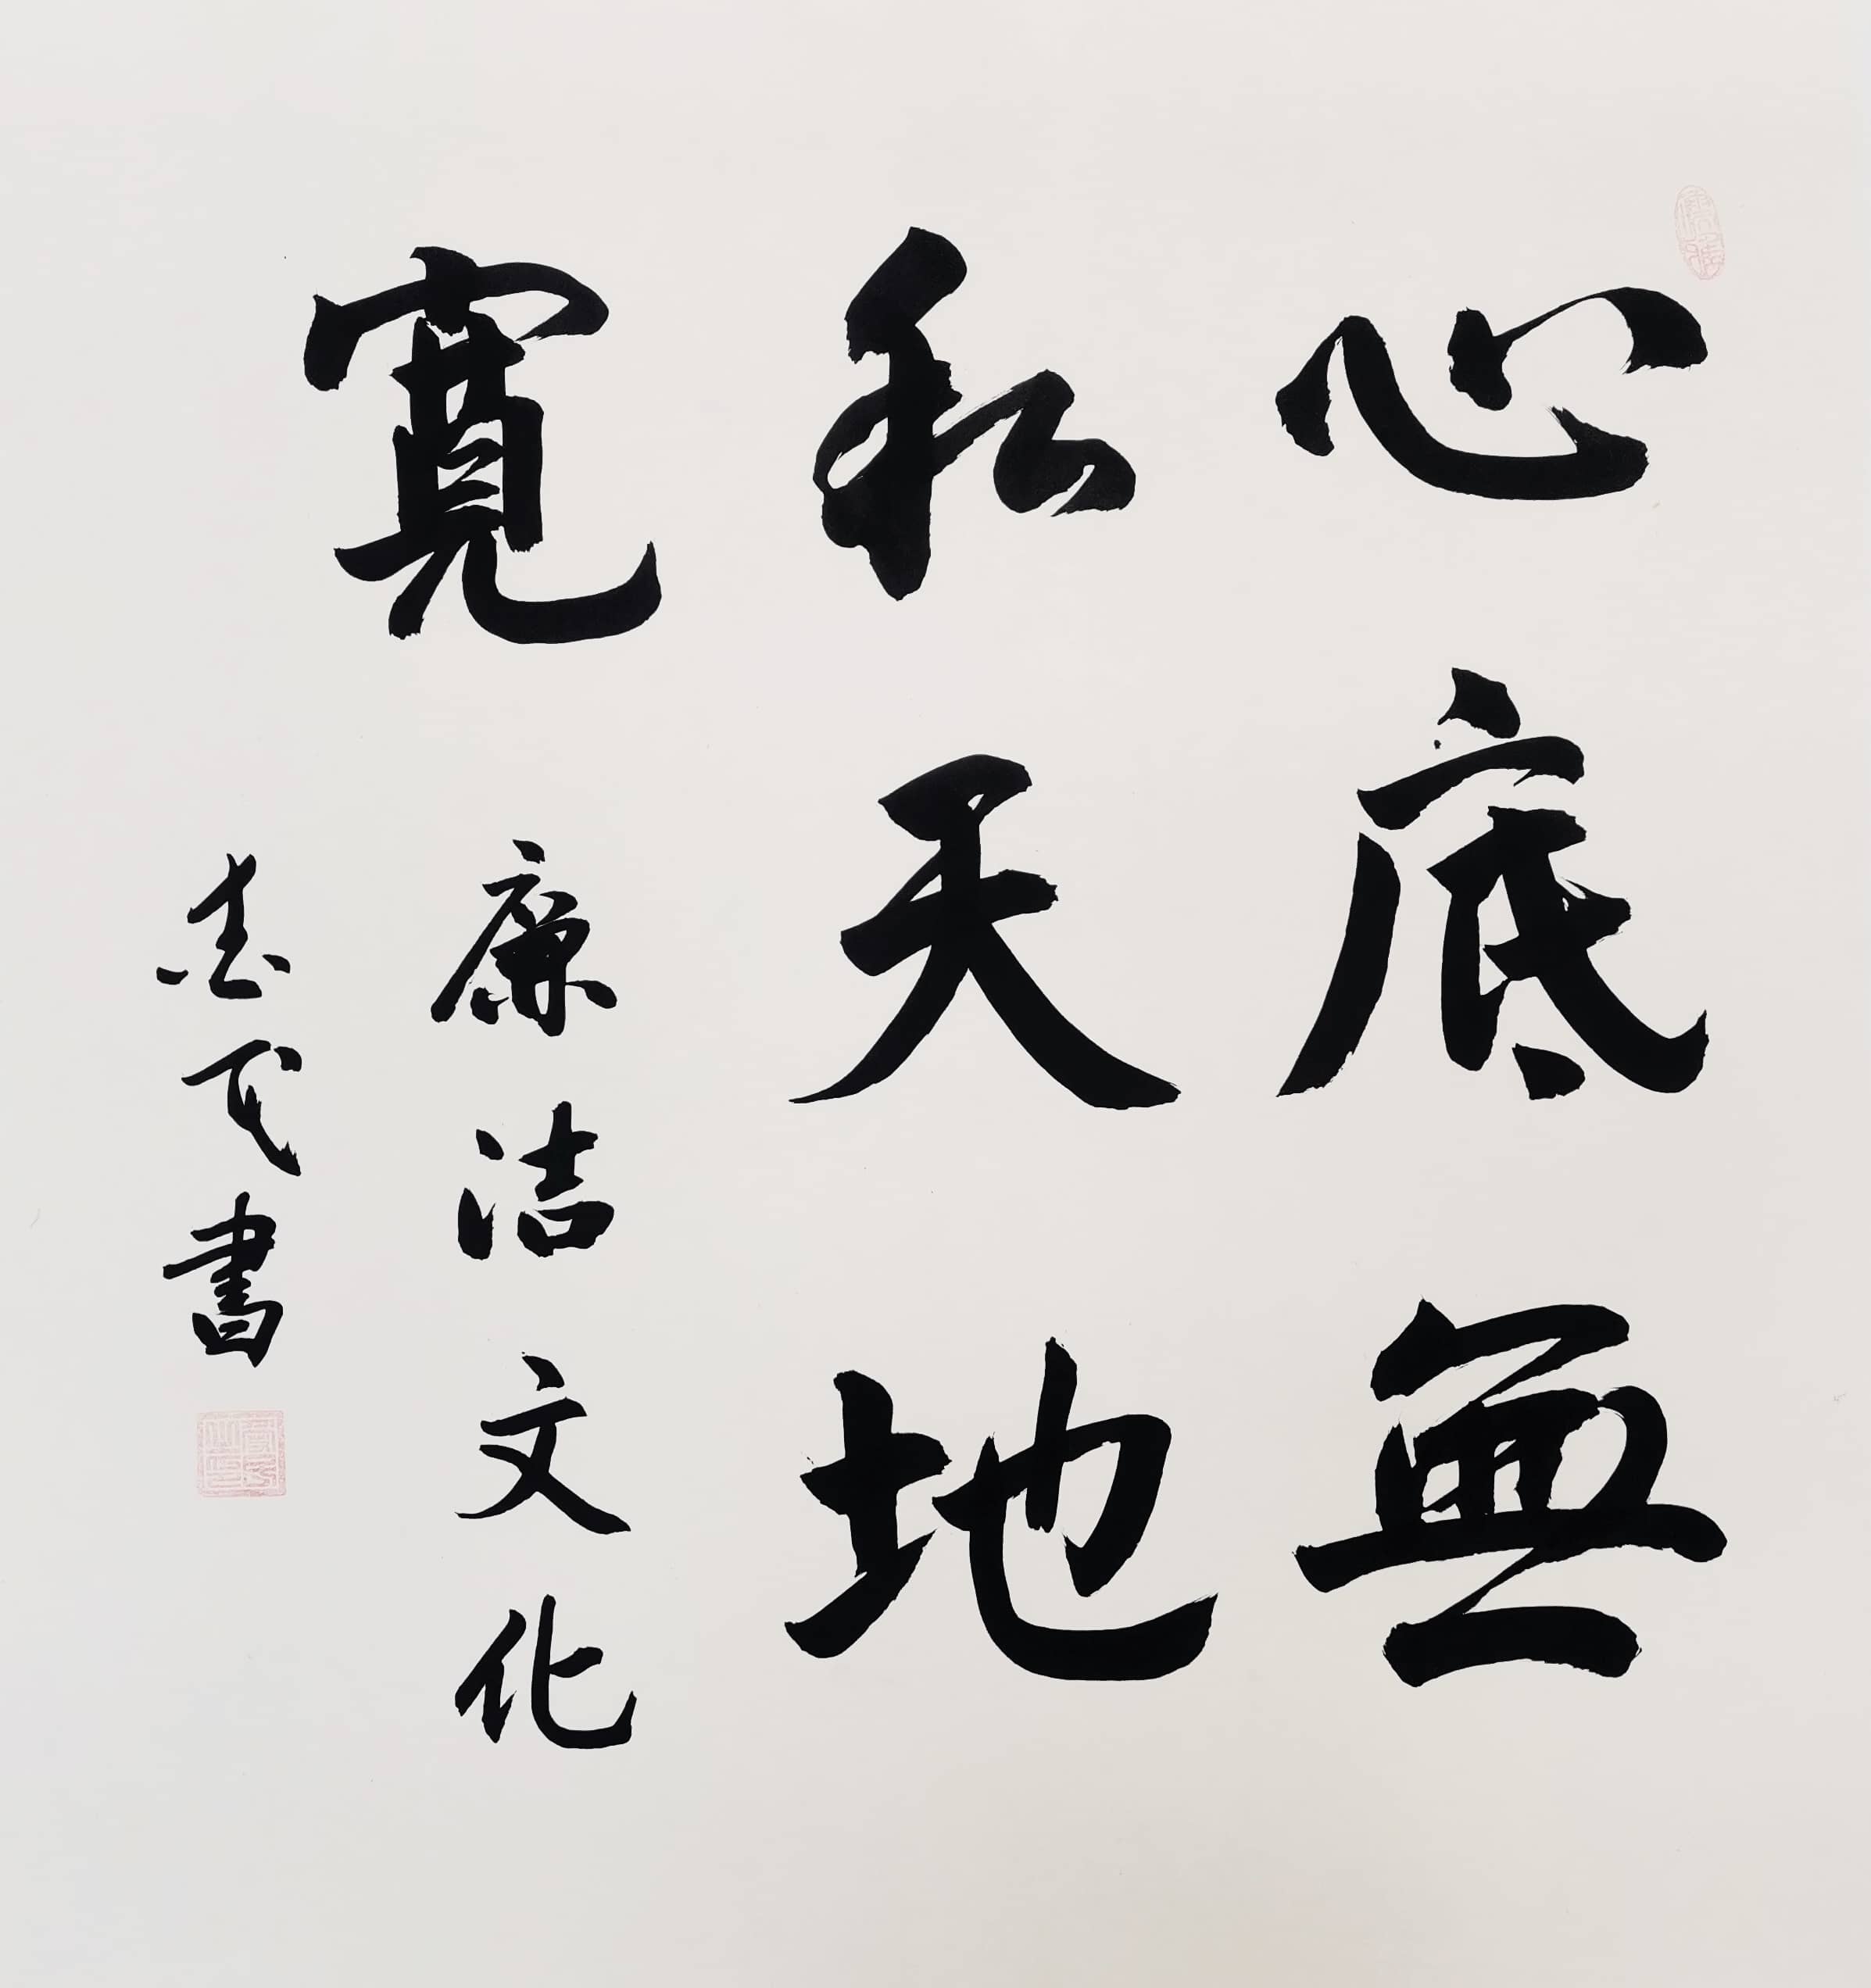 心底無
私天地
寬
廉洁文化
書